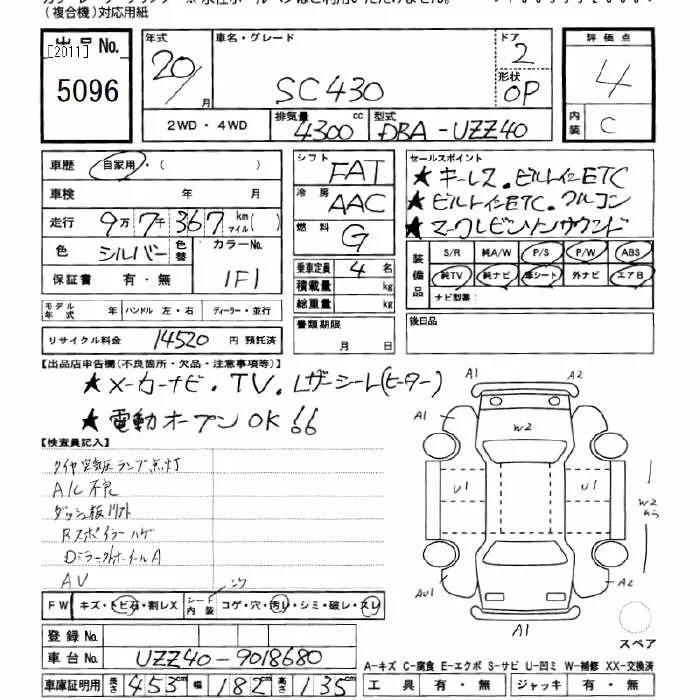 (複合機)対応用紙
出品No.
[2011]
5096
年式 車名・グレード ドア 評価点
20/ 月 SC430 2 4
形状 OP
2WD・4WD 排気量 4300cc 型式 DBA-UZZ40 内装 C
車歴 自家用・( )
車検 年 月
走行 9万7千367km マイル( )
色 シルバー 色替 カラーNo. 1F1
保証書 有・無
モデル年式 年 ハンドル 左・右 ディーラー・並行
リサイクル料金 14520 円 預託済
シフト FAT
冷房 AAC
燃料 G
乗車定員 4名
積載量 kg
総重量 kg
書類期限
月 日
セールスポイント
★キーレス・ビルトインETC
★ビルトインETC・フルコン
★マークレビンソンサウンド
装備品 S/R 純A/W P/S P/W ABS
純TV 純ナビ 革シート 外ナビ エアB
ナビ型番:
後日品
【出品店申告欄(不良箇所・欠品・注意事項等)】
★メーカーナビ・TV・レザーシート(ヒーター)
★電動オープンOK!!
【検査員記入】
タイヤ空気圧ランプ点灯
A/C不良
ダッシュ板リフト
Rスポイラーハゲ
DミラーホイールA
AV
FW キズ・トビ石・割レX シート内装 コゲ・穴・汚レ・シミ・破レ・スレ
シワ
登録No.
車台No. UZZ40-9018680
車庫証明用 長さ 453cm 幅 182cm 高さ 135cm
A1 A2
A1 W2
U1 U1 W2
AU1 A2
A1
スペア
A-キズ C-腐食 E-エクボ S-サビ U-凹ミ W-補修 XX-交換済
工具 有・無 ジャッキ 有・無